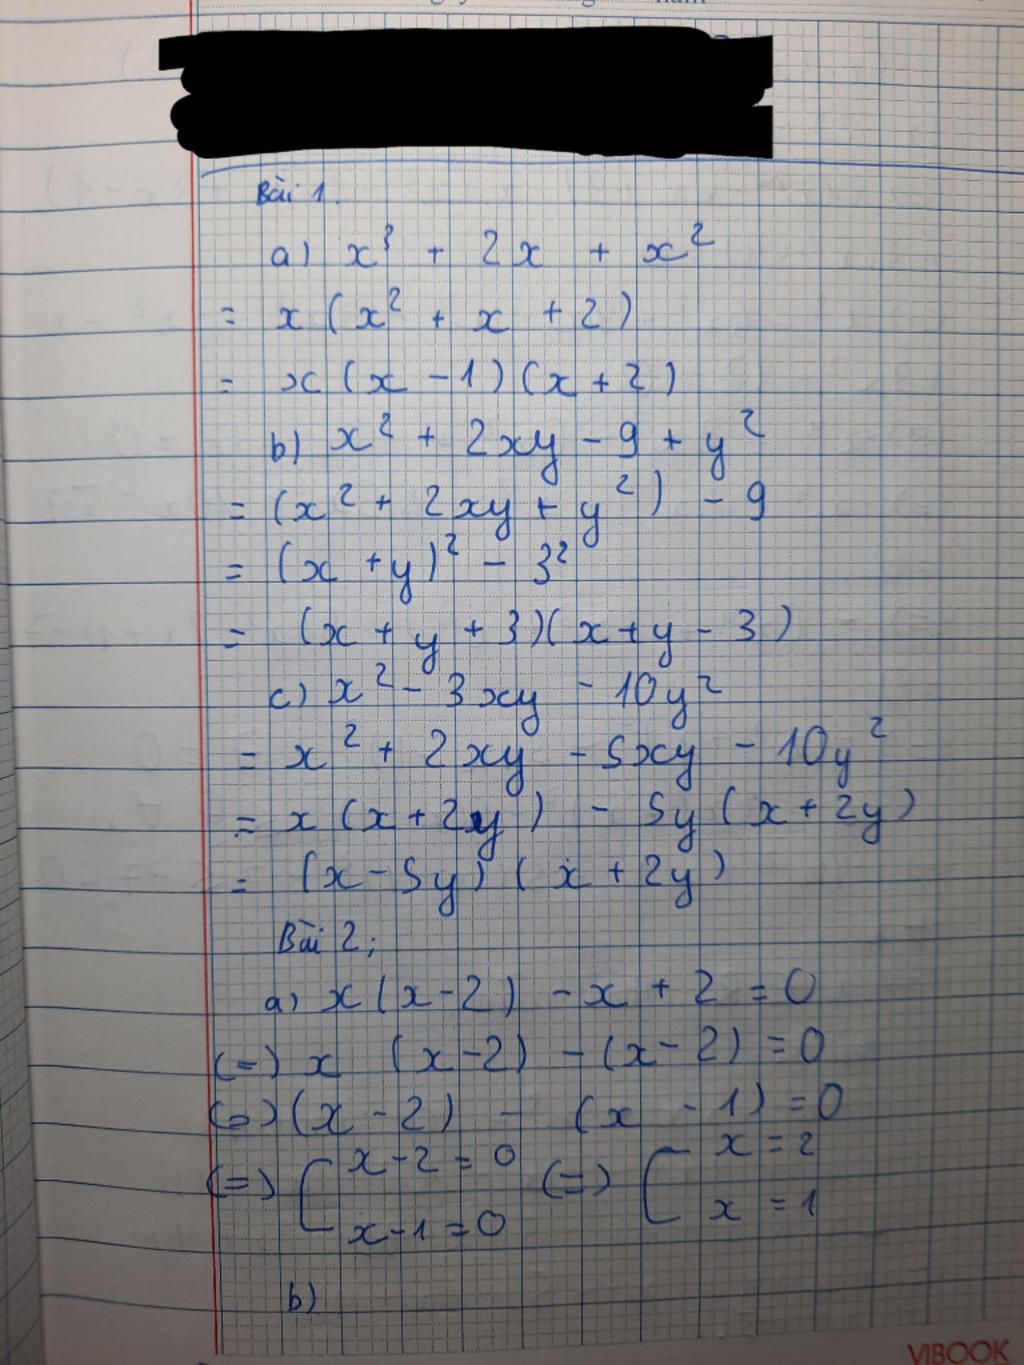 Bài 1.
a) x³ + 2x + x²
= x(x² + x + 2)
= x(x - 1)(x + 2)
b) x² + 2xy - 9 + y²
= (x² + 2xy + y²) - 9
= (x + y)² - 3²
= (x + y + 3)(x + y - 3)
c) x² - 3xy - 10y²
= x² + 2xy - 5xy - 10y²
= x(x + 2y) - 5y(x + 2y)
= (x - 5y)(x + 2y)
Bài 2;
a) x(x - 2) - x + 2 = 0
(=) x (x - 2) - (x - 2) = 0
(=) (x - 2) - (x - 1) = 0
(=) [ x - 2 = 0 (=) [ x = 2
x - 1 = 0 x = 1
b)
VIBOOK